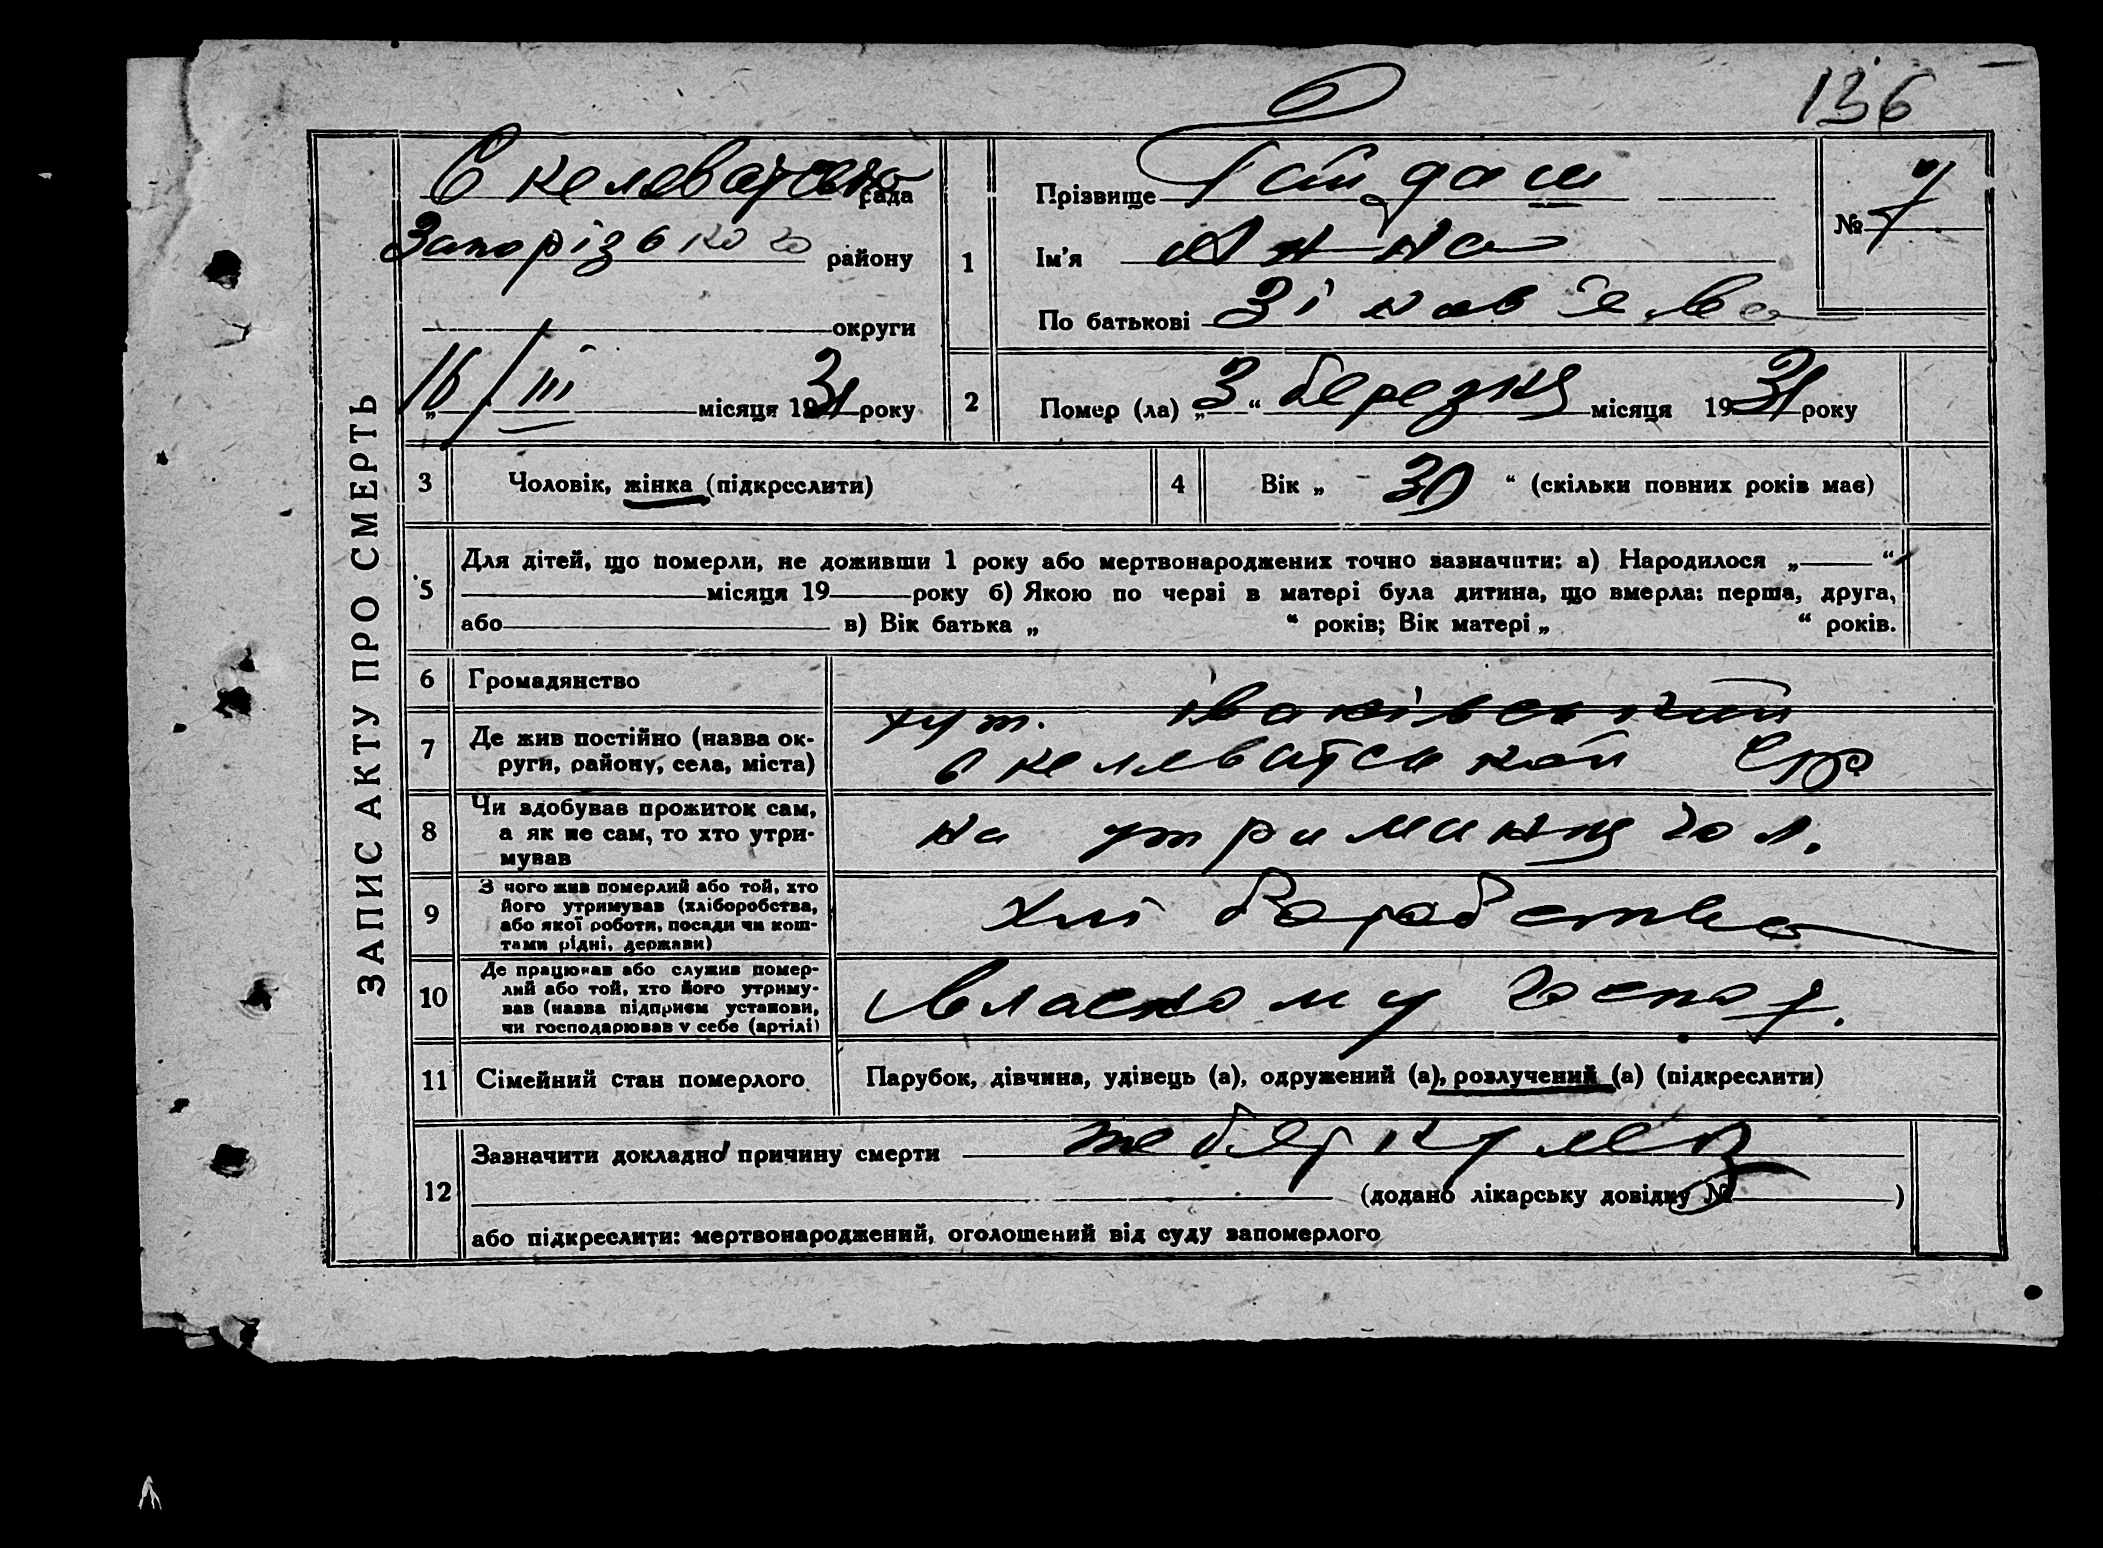 136
ЗАПИС АКТУ ПРО СМЕРТЬ
Скелеватська рада
Запорізького району
округи
„16/III місяця 1931 року
1
Прізвище Гайдаш
Ім'я Анна
По батькові Зіновʼєва
№ 7
2
Помер (ла) „3“ березня місяця 1931 року
3 Чоловік, жінка (підкреслити)
4 Вік „ 30 “ (скільки повних років має)
5 Для дітей, що померли, не доживши 1 року або мертвонароджених точно зазначити: а) Народилося „ “
місяця 19 року б) Якою по черзі в матері була дитина, що вмерла: перша, друга,
або в) Вік батька „ “ років; Вік матері „ “ років.
6 Громадянство
7 Де жив постійно (назва округи, району, села, міста)
хут.
скелеватської
8 Чи здобував прожиток сам,
а як не сам, то хто утри-
мував
на утриманні гол.
9 З чого жив померлий або той, хто
його утримував (хліборобства,
або якої роботи, посади чи кош-
тами рідні, держави)
хліборобство
10 Де працював або служив помер-
лий або той, хто його утриму-
вав (назва підприєм установи,
чи господарював у себе (артілі)
власному господ.
11 Сімейний стан померлого
Парубок, дівчина, удівець (а), одружений (а), розлучений (а) (підкреслити)
12 Зазначити докладно причину смерти теберкулез
(додано лікарську довідку № )
або підкреслити: мертвонароджений, оголошений від суду запомерлого